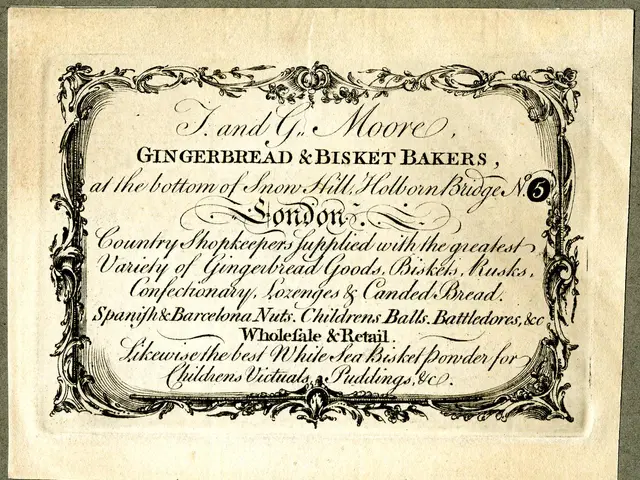 T. and G. Moore,
GINGERBREAD & BISKET BAKERS,
at the bottom of Snow Hill, Holborn Bridge No. 5
London.
Country Shopkeepers supplied with the greatest
Variety of Gingerbread Goods, Biskets, Rusks,
Confectionary, Lozenges & Canded Bread.
Spanish & Barcelona Nuts. Childrens Balls. Battledores, &c
Wholesale & Retail.
Likewise the best White Sea Bisket Powder for
Childrens Victuals, Puddings, &c.